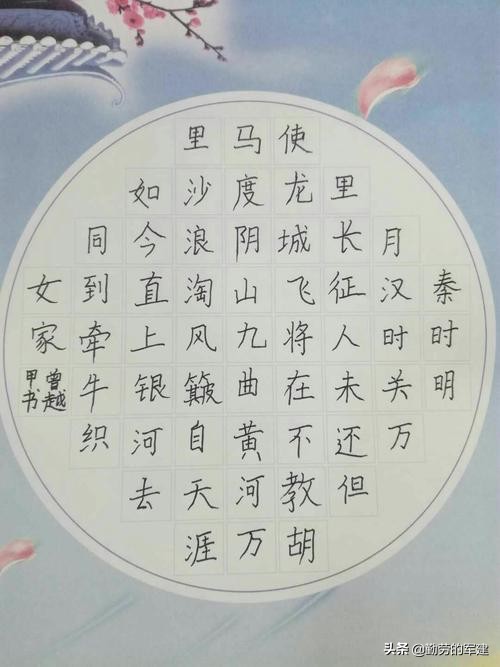 秦时明
月汉时关万
里长征人未还但
使龙城飞将在不教胡
马度阴山九曲黄河万
里沙浪淘风簸自天涯
如今直上银河去
同到牵牛织
女家
曾越
甲书
头条 @勤劳的军建